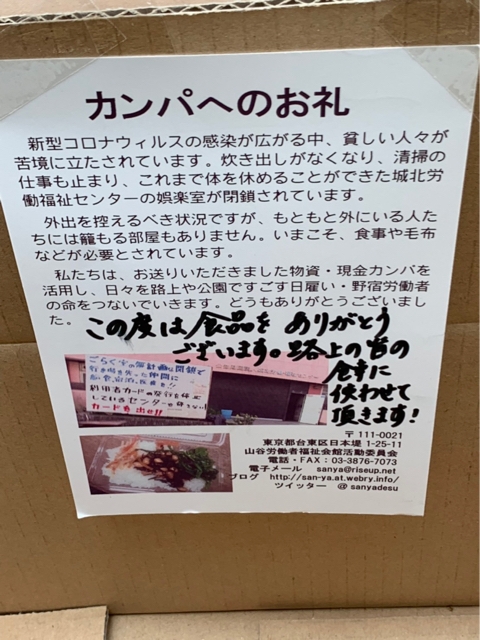 カンパへのお礼
新型コロナウィルスの感染が広がる中、貧しい人々が
苦境に立たされています。炊き出しがなくなり、清掃の
仕事も止まり、これまで体を休めることができた城北労
働福祉センターの娯楽室が閉鎖されています。
外出を控えるべき状況ですが、もともと外にいる人た
ちには籠もる部屋もありません。いまこそ、食事や毛布
などが必要とされています。
私たちは、お送りいただきました物資・現金カンパを
活用し、日々を路上や公園ですごす日雇い・野宿労働者
の命をつないでいきます。どうもありがとうございまし
た。
この度は食品を ありがとう
ございます。路上の皆の
食事に
使わせて
頂きます!
利用者カードの発行を休止
しているセンターを許さない!
カードを出せ!!
〒111-0021
東京都台東区日本堤 1-25-11
山谷労働者福祉会館活動委員会
電話・FAX:03-3876-7073
電子メール sanya@riseup.net
ブログ http://san-ya.at.webry.info/
ツイッター @sanyadesu